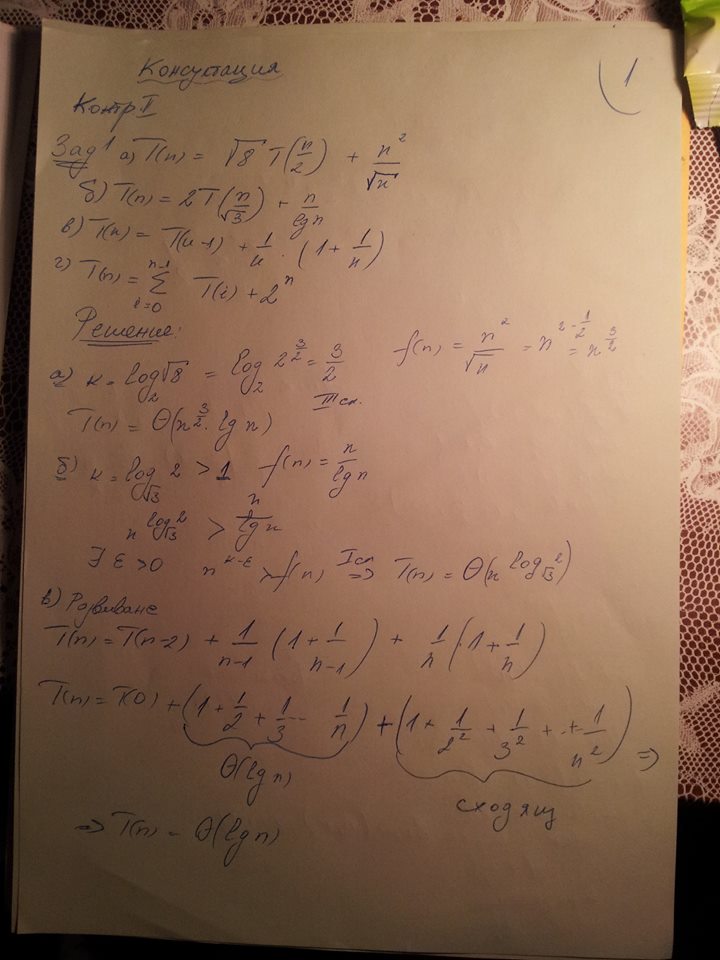 Консултация
1
Контр. II
Зад 1 а) T(n) = √8 T(n/2) + n²/√n
б) T(n) = 2T(n/√3) + n/lg n
в) T(n) = T(n-1) + 1/n · (1 + 1/n)
г) T(n) = ∑_{i=0}^{n-1} T(i) + 2^n
Решение:
а) k = log_2 √8 = log_2 2^{3/2} = 3/2 f(n) = n²/√n = n^{2-1/2} = n^{3/2}
II сл.
T(n) = Θ(n^{3/2} · lg n)
б) k = log_{√3} 2 > 1 f(n) = n/lg n
n^{log_{√3} 2} > n/lg n
∃ ε > 0 n^{k-ε} > f(n) I сл ⇒ T(n) = Θ(n^{log_{√3} 2})
в) Развиване
T(n) = T(n-2) + 1/(n-1) (1 + 1/(n-1)) + 1/n (1 + 1/n)
T(n) = T(0) + (1 + 1/2 + 1/3 ... 1/n) + (1 + 1/2² + 1/3² + .. + 1/n²) ⇒
Θ(lg n)
сходящ
⇒ T(n) = Θ(lg n)